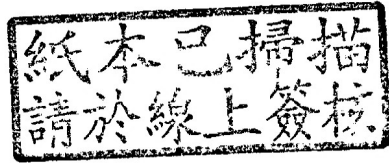 紙本已掃描
請於線上簽核